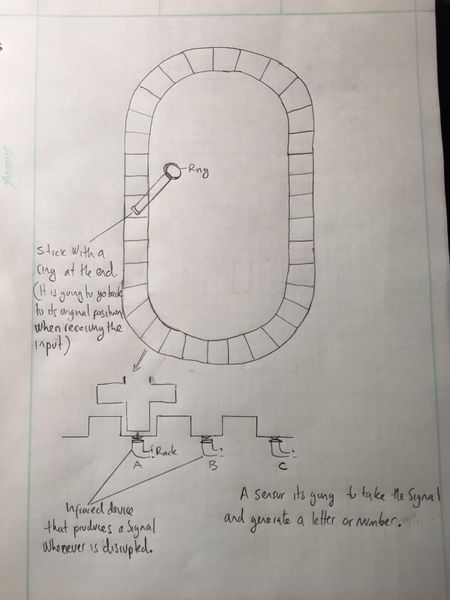 Ring
Stick with a
ring at the end.
(It is going to go back
to its original position
when receiving the
input)
Rack
A
B
C
Infrared device
that produces a signal
Whenever is disrupted.
A sensor its going to take the signal
and generate a letter or number.